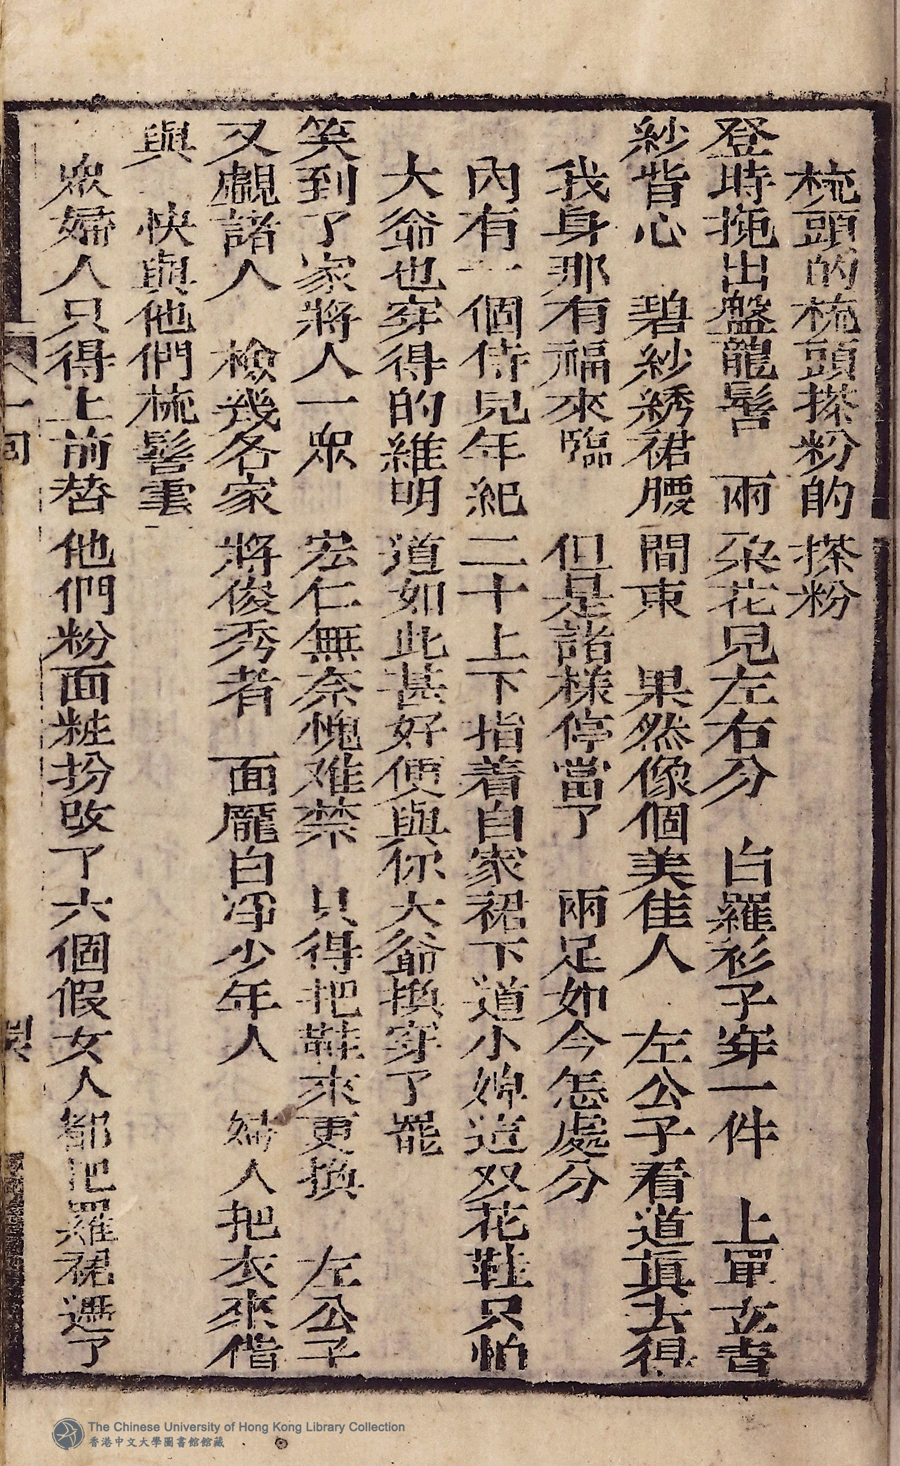 梳頭的梳頭搽粉的搽粉
登時挽出盤龍髻 兩朶花兒左右分 白羅衫子穿一件 上單立青
紗背心 碧紗綉裙腰間束 果然像個美佳人 左公子看道真去得
我身那有福來臨 但是諸樣停當了 兩足如今怎處分
內有一個侍兒年紀二十上下指着自家裙下道小婢這双花鞋只怕
大爺也穿得的維明道如此甚好便與你大爺換穿了罷
笑到了家將人一眾 宏仁無奈愧难禁 只得把鞋來更換 左公子
又覷諸人 檢幾名家將俊秀者 面龐白净少年人 婦人把衣來借
與 快與他們梳髻雲
眾婦人只得上前替他們粉面粧扮改了六個假女人都把羅裙遞了
一回
The Chinese University of Hong Kong Library Collection
香港中文大學圖書館館藏